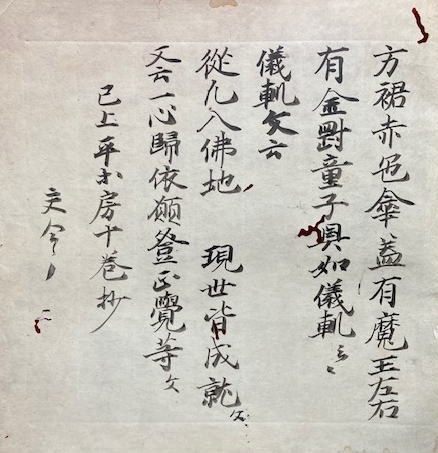 方裙赤色傘蓋有魔王左右
有金剛童子具如儀軌云々
儀軌文云
從凡入佛地 現世皆成就文
又云一心歸依願登正覺等文
已上平等房十巻抄